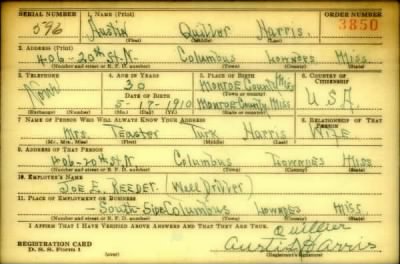 SERIAL NUMBER 1. NAME (Print) ORDER NUMBER
596 Austin Quilber Harris. 3850
(First) (Middle) (Last)
2. ADDRESS (Print)
406-20th St. N. Columbus Lowndes Miss.
(Number and street or R. F. D. number) (Town) (County) (State)
3. TELEPHONE 4. AGE IN YEARS 5. PLACE OF BIRTH 6. COUNTRY OF CITIZENSHIP
None 30 Monroe County Miss
DATE OF BIRTH U.S.A.
5-17-1910 Monroe County Miss
(Mo.) (Day) (Yr.)
7. NAME OF PERSON WHO WILL ALWAYS KNOW YOUR ADDRESS 8. RELATIONSHIP OF THAT PERSON
Mrs. Teaster Turk Harris Wife
(Mr., Mrs., Miss) (First) (Middle) (Last)
9. ADDRESS OF THAT PERSON
406-20th St. N. Columbus Lowndes Miss
(Number and street or R. F. D. number) (Town) (County) (State)
10. EMPLOYER'S NAME
Joe E. Reeder. (Well Driller)
11. PLACE OF EMPLOYMENT OR BUSINESS
South Side Columbus Lowndes Miss
(Number and street or R. F. D. number) (Town) (County) (State)
I AFFIRM THAT I HAVE VERIFIED ABOVE ANSWERS AND THAT THEY ARE TRUE.
REGISTRATION CARD
D. S. S. FORM 1
Austin Harris
(Registrant's signature)